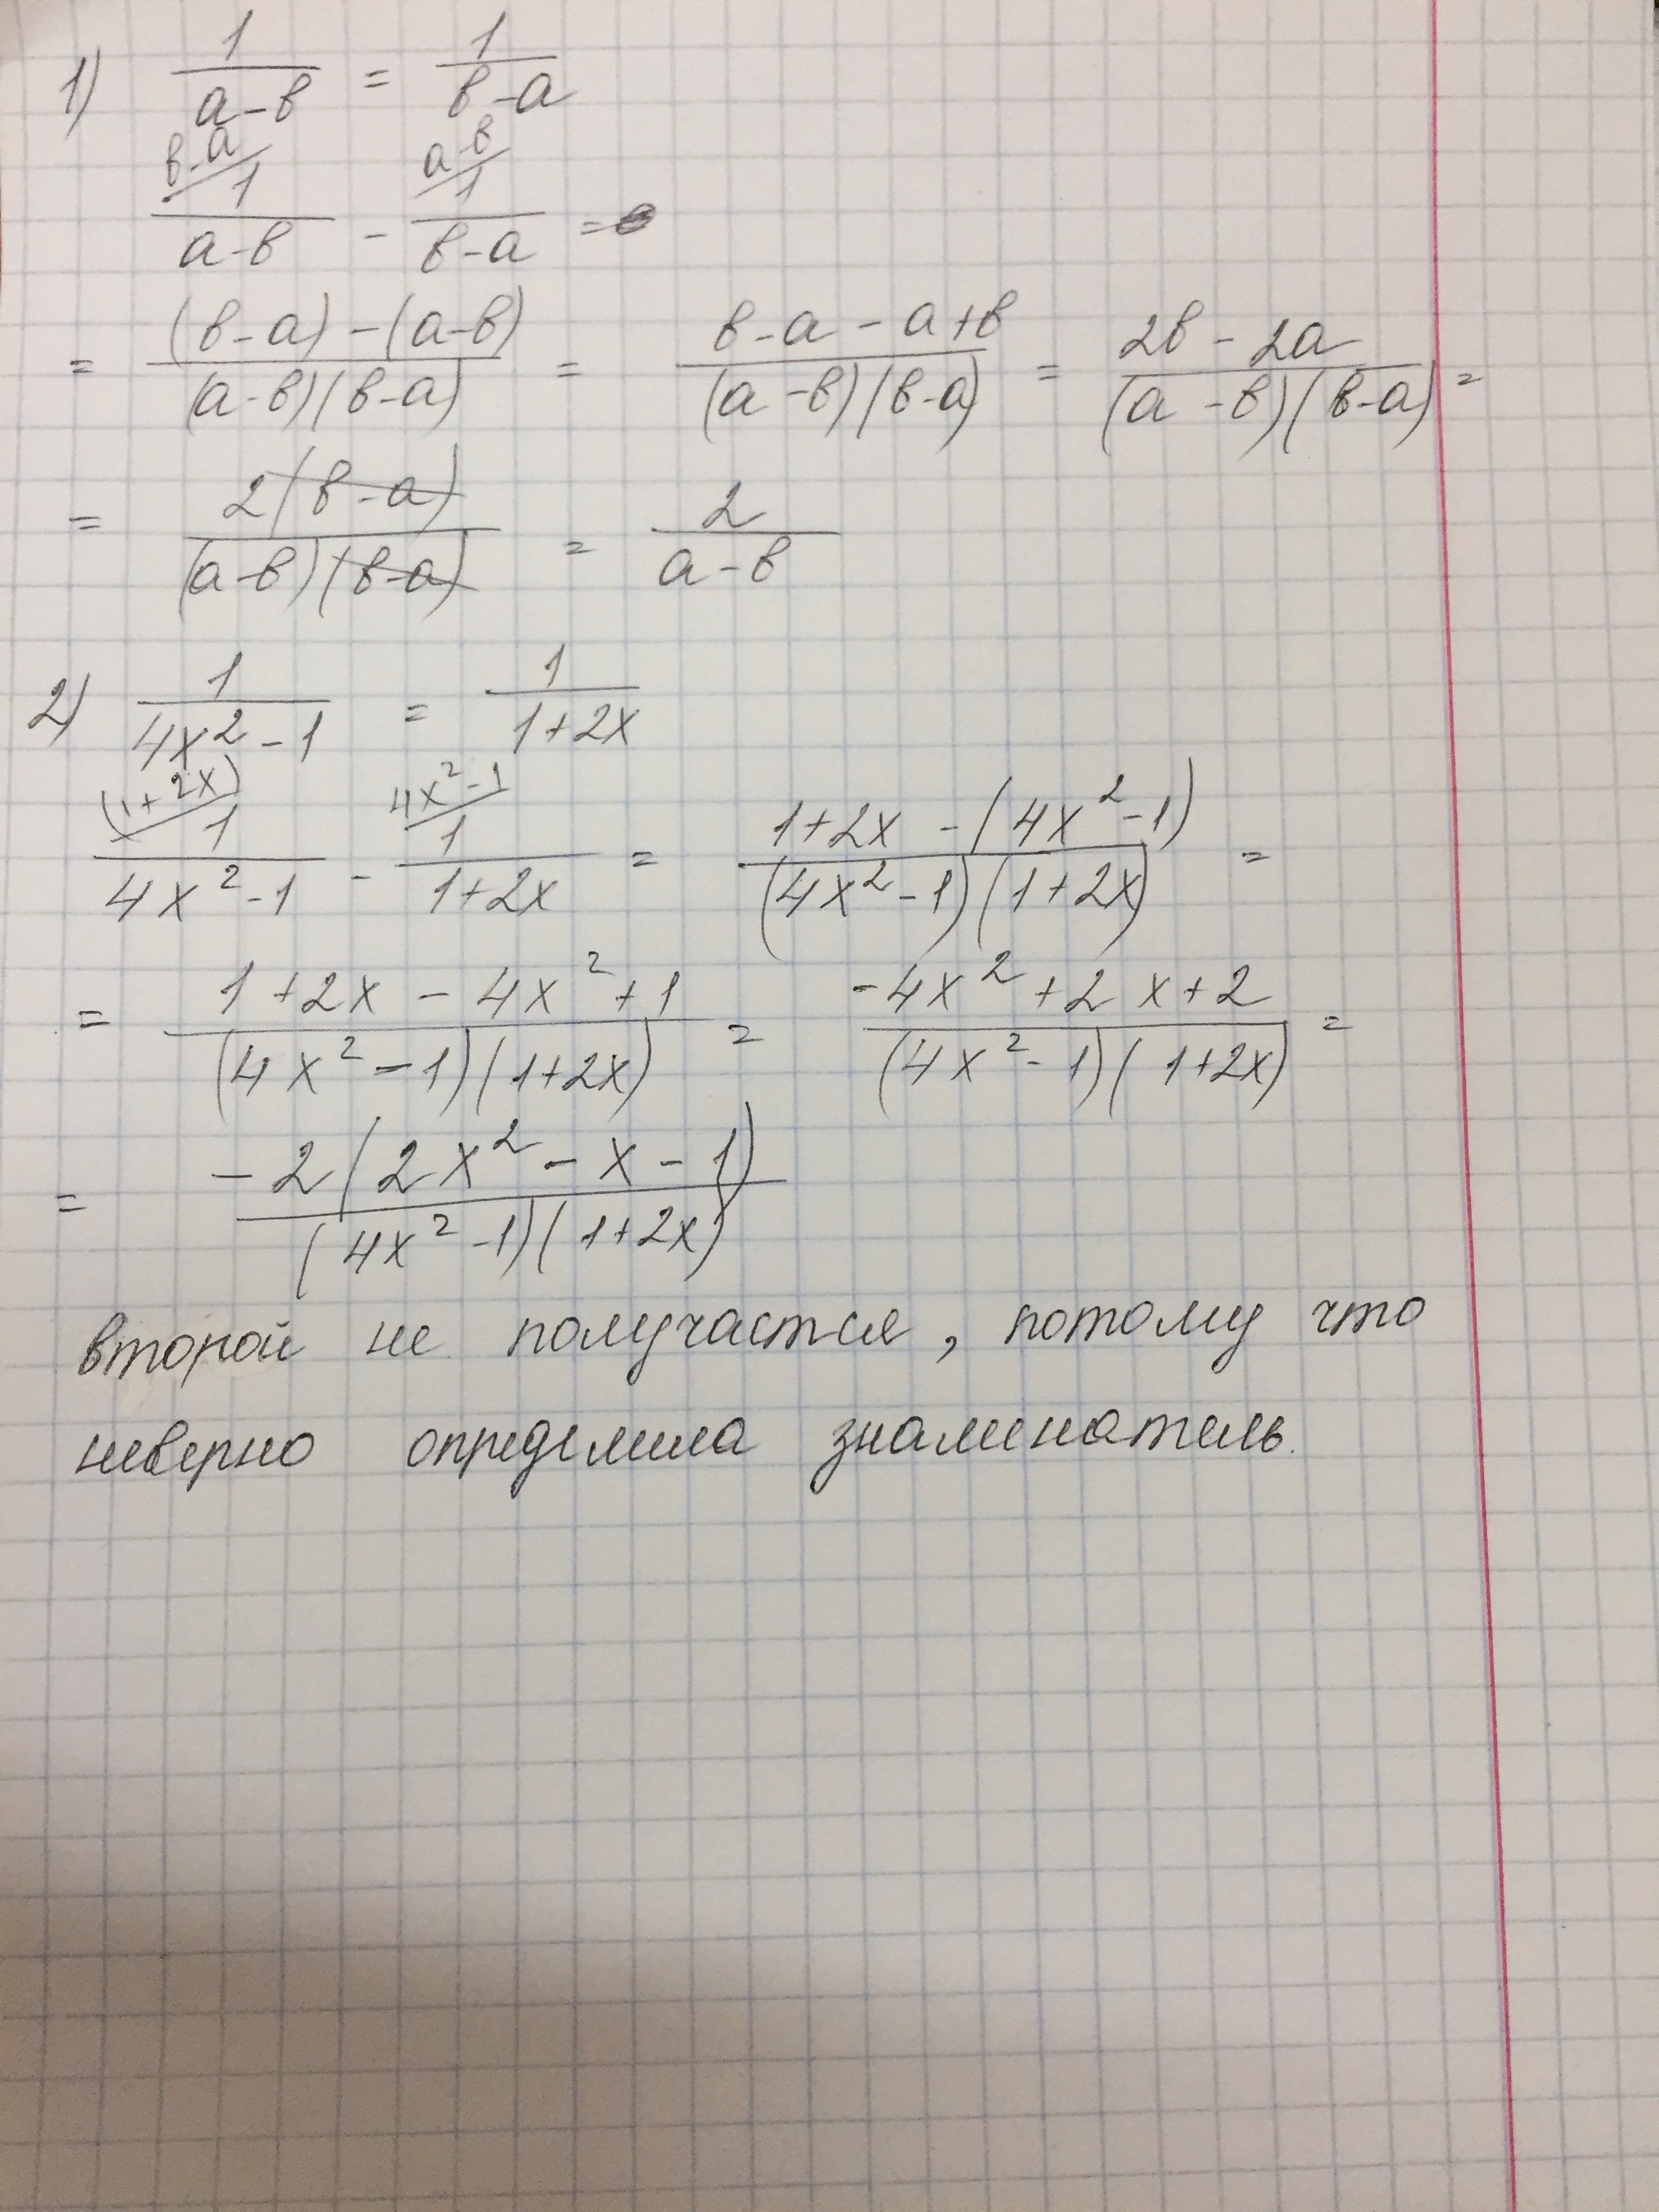 1) 1/(а-в) = 1/(в-а)
в-а/ 1/(а-в) - а-в/ 1/(в-а) =
= ((в-а)-(а-в))/((а-в)(в-а)) = (в-а-а+в)/((а-в)(в-а)) = (2в-2а)/((а-в)(в-а)) =
= 2(в-а)/((а-в)(в-а)) = 2/(а-в)
2) 1/(4x²-1) = 1/(1+2x)
(1+2x)/ 1/(4x²-1) - 4x²-1/ 1/(1+2x) = (1+2x-(4x²-1))/((4x²-1)(1+2x)) =
= (1+2x-4x²+1)/((4x²-1)(1+2x)) = (-4x²+2x+2)/((4x²-1)(1+2x)) =
= -2(2x²-x-1)/((4x²-1)(1+2x))
второй не получается, потому что
неверно определила знаменатель.